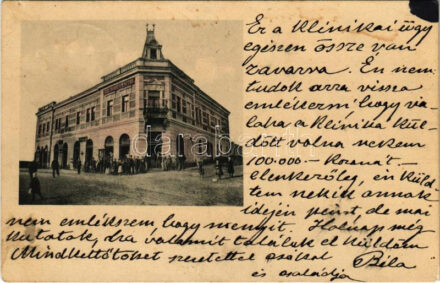 Ez a Klinikai ügy
egészen össze van
zavarva. Én nem
tudok arra vissza
emlékezni hogy va-
laha a Klinika kül-
dött volna nekem
100.000.— Koronát —
ellenkezőleg, én küld-
tem nekik annak
idején pénzt, de mai
nem emlékszem hogy mennyit. Holnap még
kutatok, ha valamit találok elküldöm
Mindkettőtöket szeretettel csókol
Béla
és családja
darabanth